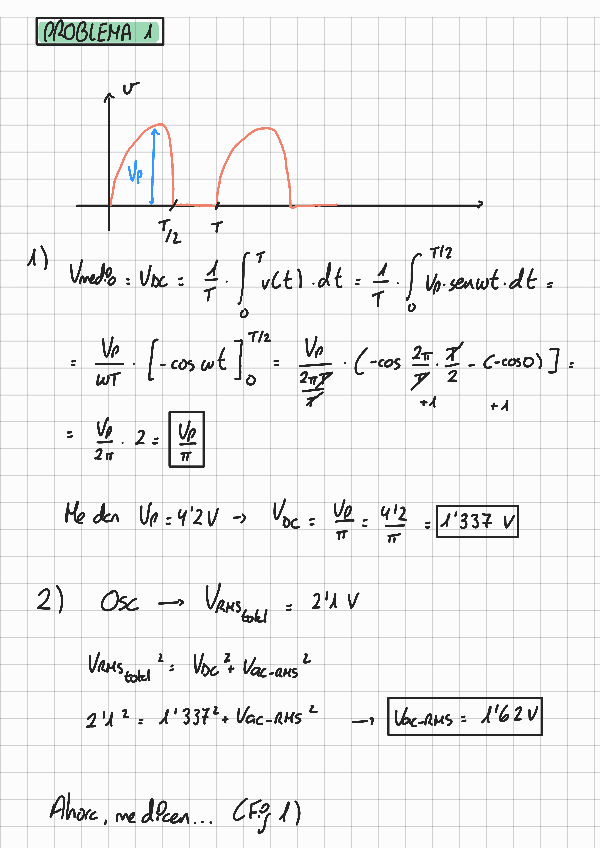 PROBLEMA 1
v
Vp
T/2
T
1) Vmedio = VDC = 1/T · ∫₀ᵀ v(t) · dt = 1/T · ∫₀^(T/2) Vp · senωt · dt =
= Vp/ωT · [-cos ωt]₀^(T/2) = Vp/(2π/T · T) · (-cos 2π/T · T/2 - (-cos0)] =
+1 +1
= Vp/2π · 2 = Vp/π
Me dan Vp = 4'2V → VDC = Vp/π = 4'2/π = 1'337 V
2) Osc → VRMStotal = 2'1 V
VRMStotal² = VDC² + Vac-RMS²
2'1² = 1'337² + Vac-RMS² → Vac-RMS = 1'62V
Ahora, me dicen... (Fig 1)